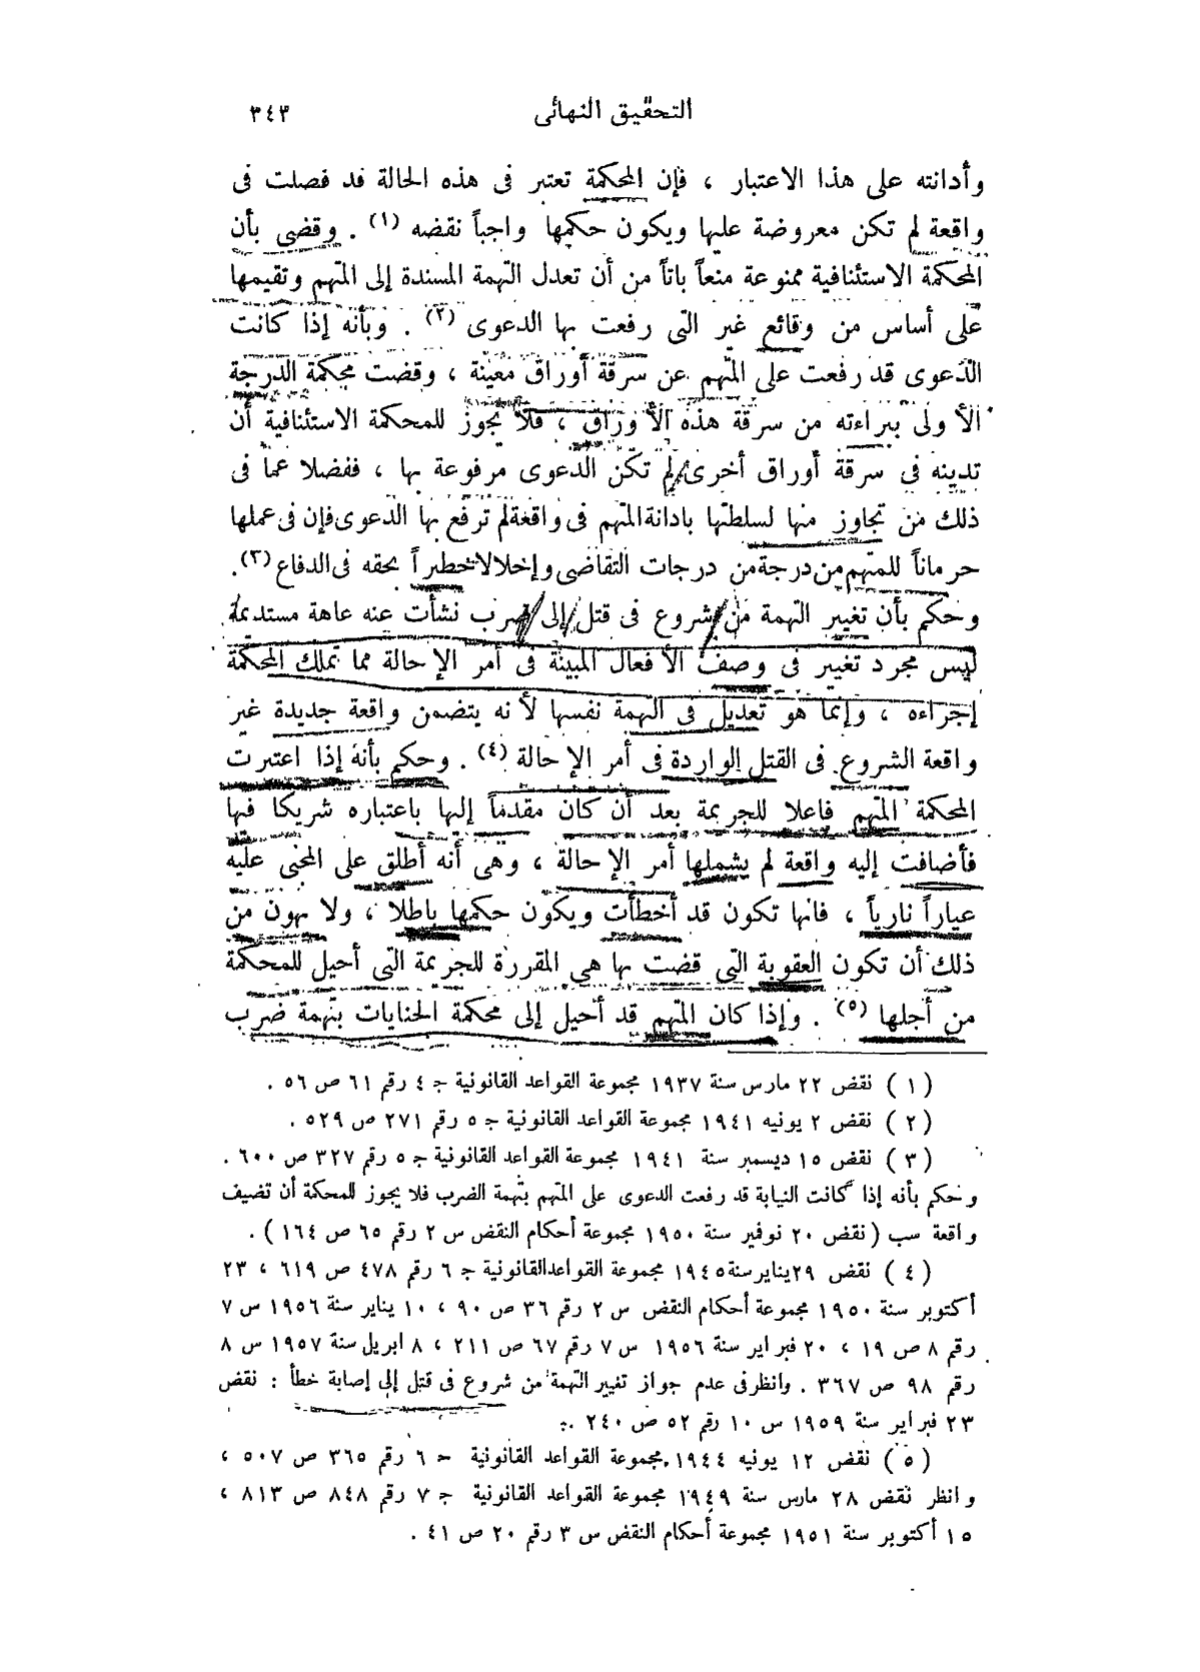 التحقيق النهائى
٣٤٣
وأدانته على هذا الاعتبار ، فإن المحكمة تعتبر فى هذه الحالة قد فصلت فى
واقعة لم تكن معروضة عليها ويكون حكمها واجباً نقضه (١) . وقضى بأن
المحكمة الاستئنافية ممنوعة منعاً باتاً من أن تعدل التهمة المسندة إلى المتهم وتقيمها
على أساس من وقائع غير التى رفعت بها الدعوى (٢) . وبأنه إذا كانت
الدعوى قد رفعت على المتهم عن سرقة أوراق معينة ، وقضت محكمة الدرجة
الأولى ببراءته من سرقة هذه الأوراق ، فلا يجوز للمحكمة الاستئنافية أن
تدينه فى سرقة أوراق أخرى لم تكن الدعوى مرفوعة بها ، ففضلا عما فى
ذلك من تجاوز منها لسلطتها بادانة المتهم فى واقعة لم ترفع بها الدعوى فإن فى عملها
حرماناً للمتهم من درجة من درجات التقاضى وإخلالا خطيراً بحقه فى الدفاع (٣) .
وحكم بأن تغيير التهمة من شروع فى قتل إلى ضرب نشأت عنه عاهة مستديمة
ليس مجرد تغيير فى وصف الأفعال المبينة فى أمر الإحالة مما تملك المحكمة
إجراءه ، وإنما هو تعديل فى التهمة نفسها لأنه يتضمن واقعة جديدة غير
واقعة الشروع فى القتل الواردة فى أمر الإحالة (٤) . وحكم بأنه إذا اعتبرت
المحكمة المتهم فاعلا للجريمة بعد أن كان مقدماً إليها باعتباره شريكا فيها
فأضافت إليه واقعة لم يشملها أمر الإحالة ، وهى أنه أطلق على المجنى عليه
عياراً نارياً ، فانها تكون قد أخطأت ويكون حكمها باطلا ، ولا يهون من
ذلك أن تكون العقوبة التى قضت بها هى المقررة للجريمة التى أحيل للمحكمة
من أجلها (٥) . وإذا كان المتهم قد أحيل إلى محكمة الجنايات بتهمة ضرب
(١) نقض ٢٢ مارس سنة ١٩٣٧ مجموعة القواعد القانونية ج ٤ رقم ٦١ ص ٥٦ .
(٢) نقض ٢ يونيه ١٩٤١ مجموعة القواعد القانونية ج ٥ رقم ٢٧١ ص ٥٢٩ .
(٣) نقض ١٥ ديسمبر سنة ١٩٤١ مجموعة القواعد القانونية ج ٥ رقم ٣٢٧ ص ٦٠٠ .
وحكم بأنه إذا كانت النيابة قد رفعت الدعوى على المتهم بتهمة الضرب فلا يجوز للمحكمة أن تضيف
واقعة سب (نقض ٢٠ نوفمبر سنة ١٩٥٠ مجموعة أحكام النقض س ٢ رقم ٦٥ ص ١٦٤) .
(٤) نقض ٢٩ يناير سنة ١٩٤٥ مجموعة القواعد القانونية ج ٦ رقم ٤٧٨ ص ٦١٩ ، ٢٣
أكتوبر سنة ١٩٥٠ مجموعة أحكام النقض س ٢ رقم ٣٦ ص ٩٠ ، ١٠ يناير سنة ١٩٥٦ س ٧
رقم ٨ ص ١٩ ، ٢٠ فبراير سنة ١٩٥٦ س ٧ رقم ٦٧ ص ٢١١ ، ٨ ابريل سنة ١٩٥٧ س ٨
رقم ٩٨ ص ٣٦٧ . وانظر فى عدم جواز تغيير التهمة من شروع فى قتل إلى إصابة خطأ : نقض
٢٣ فبراير سنة ١٩٥٩ س ١٠ رقم ٥٢ ص ٢٤٠ .
(٥) نقض ١٢ يونيه ١٩٤٤ مجموعة القواعد القانونية ج ٦ رقم ٣٦٥ ص ٥٠٧ ،
وانظر نقض ٢٨ مارس سنة ١٩٤٩ مجموعة القواعد القانونية ج ٧ رقم ٨٤٨ ص ٨١٣ ،
١٥ أكتوبر سنة ١٩٥١ مجموعة أحكام النقض س ٣ رقم ٢٠ ص ٤١ .